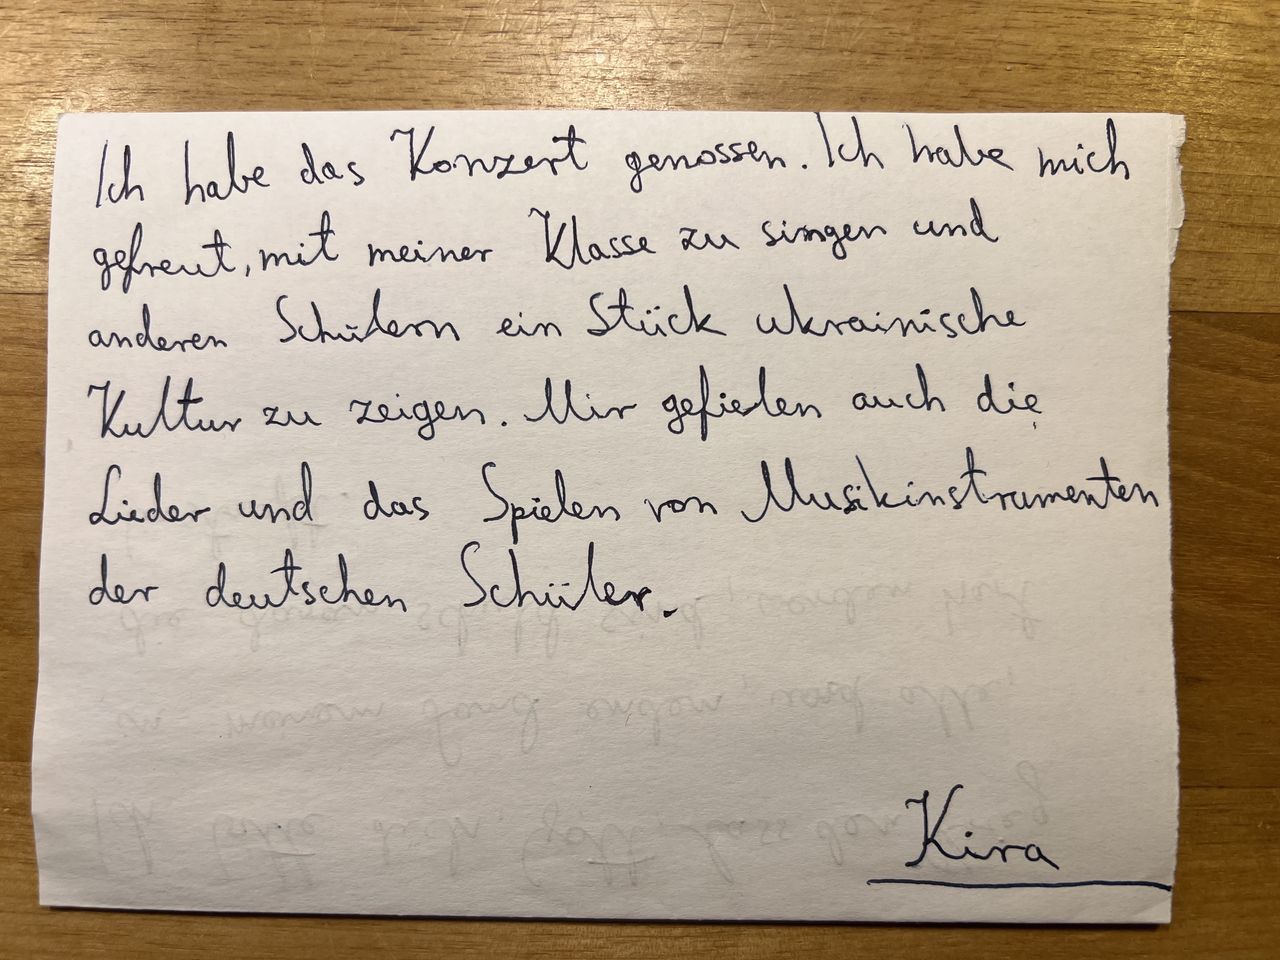 Ich habe das Konzert genossen. Ich habe mich
gefreut, mit meiner Klasse zu singen und
anderen Schülern ein Stück ukrainische
Kultur zu zeigen. Mir gefielen auch die
Lieder und das Spielen von Musikinstrumenten
der deutschen Schüler.
Kira